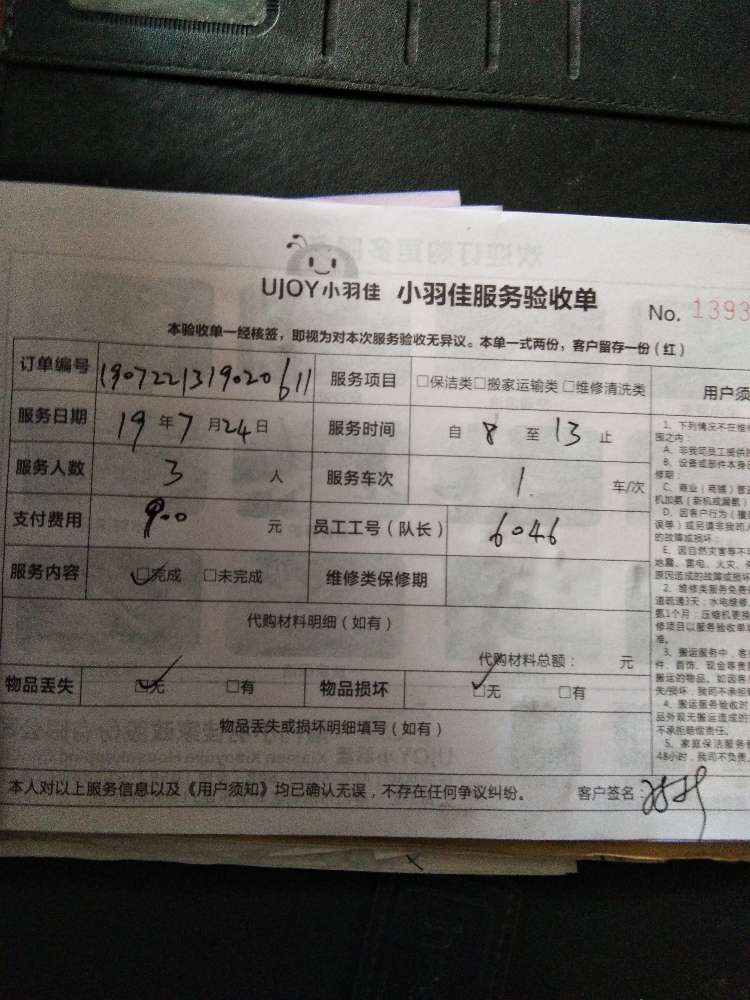 UJOY小羽佳 小羽佳服务验收单
No. 1393
本验收单一经核签，即视为对本次服务验收无异议。本单一式两份，客户留存一份（红）
订单编号 1907221319020611 服务项目 □保洁类□搬家运输类 □维修清洗类 用户须
服务日期 19年7月24日 服务时间 自 8 至 13 止
服务人数 3 人 服务车次 1. 车/次
支付费用 900 元 员工工号（队长） 6046
服务内容 ☑完成 □未完成 维修类保修期
代购材料明细（如有）
代购材料总额： 元
物品丢失 ☑无 □有 物品损坏 ☑无 □有
物品丢失或损坏明细填写（如有）
本人对以上服务信息以及《用户须知》均已确认无误，不存在任何争议纠纷。 客户签名：
1、下列情况不在维
围之内：
A、非我司员工提供
B、设备或部件本身
修期；
C、商业（商铺）普
机加氨（新机或漏氨）
D、因客户行为（擅
误等）或另请非我司
的故障或损坏；
E、因自然灾害等不
地震、雷电、火灾、
原因造成的故障或损坏
2、维修类服务免费
道疏通3天；水电维修
氨1个月；压缩机更换
修项目以服务验收单
准。
3、搬运服务中，客
件、首饰、现金等贵
搬运的物品，如因客
失/损坏，我司不承担
4、搬运服务验收时
品外观无搬运造成的
不承担赔偿责任。
5、家庭保洁服务
48小时，我司不负责